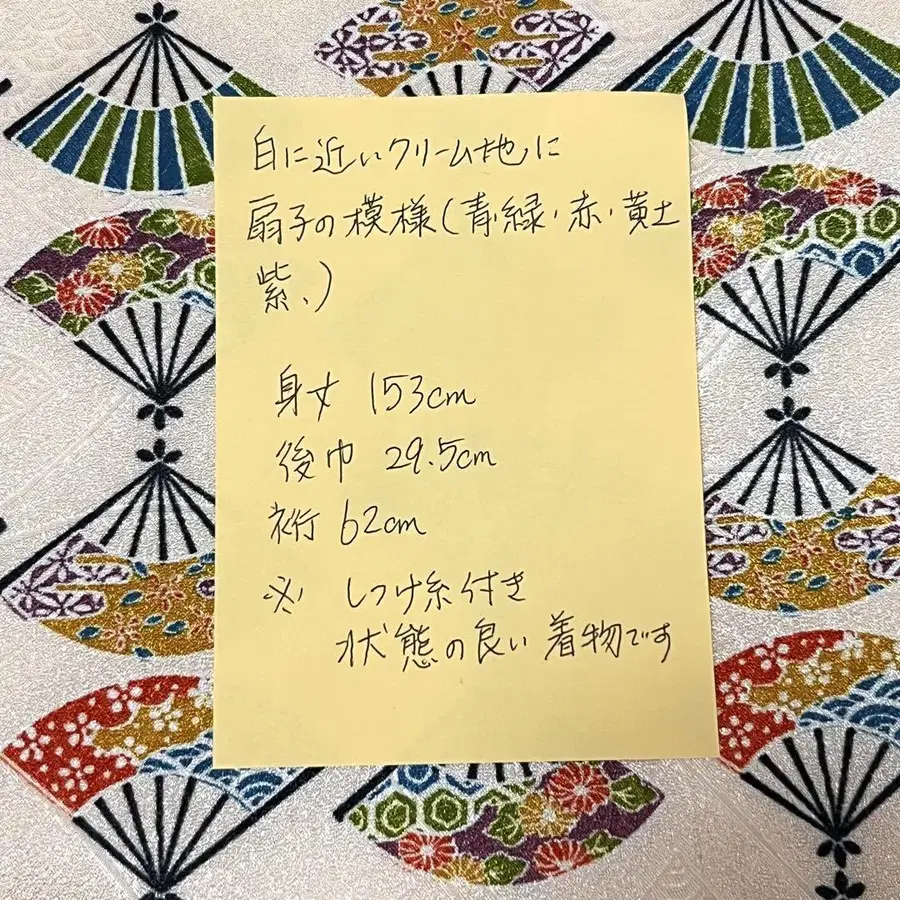 白に近いクリーム地に
扇子の模様(青・緑・赤・黄土
紫、)
身丈 153cm
後巾 29.5cm
裄 62cm
※ しつけ糸付き
状態の良い着物です